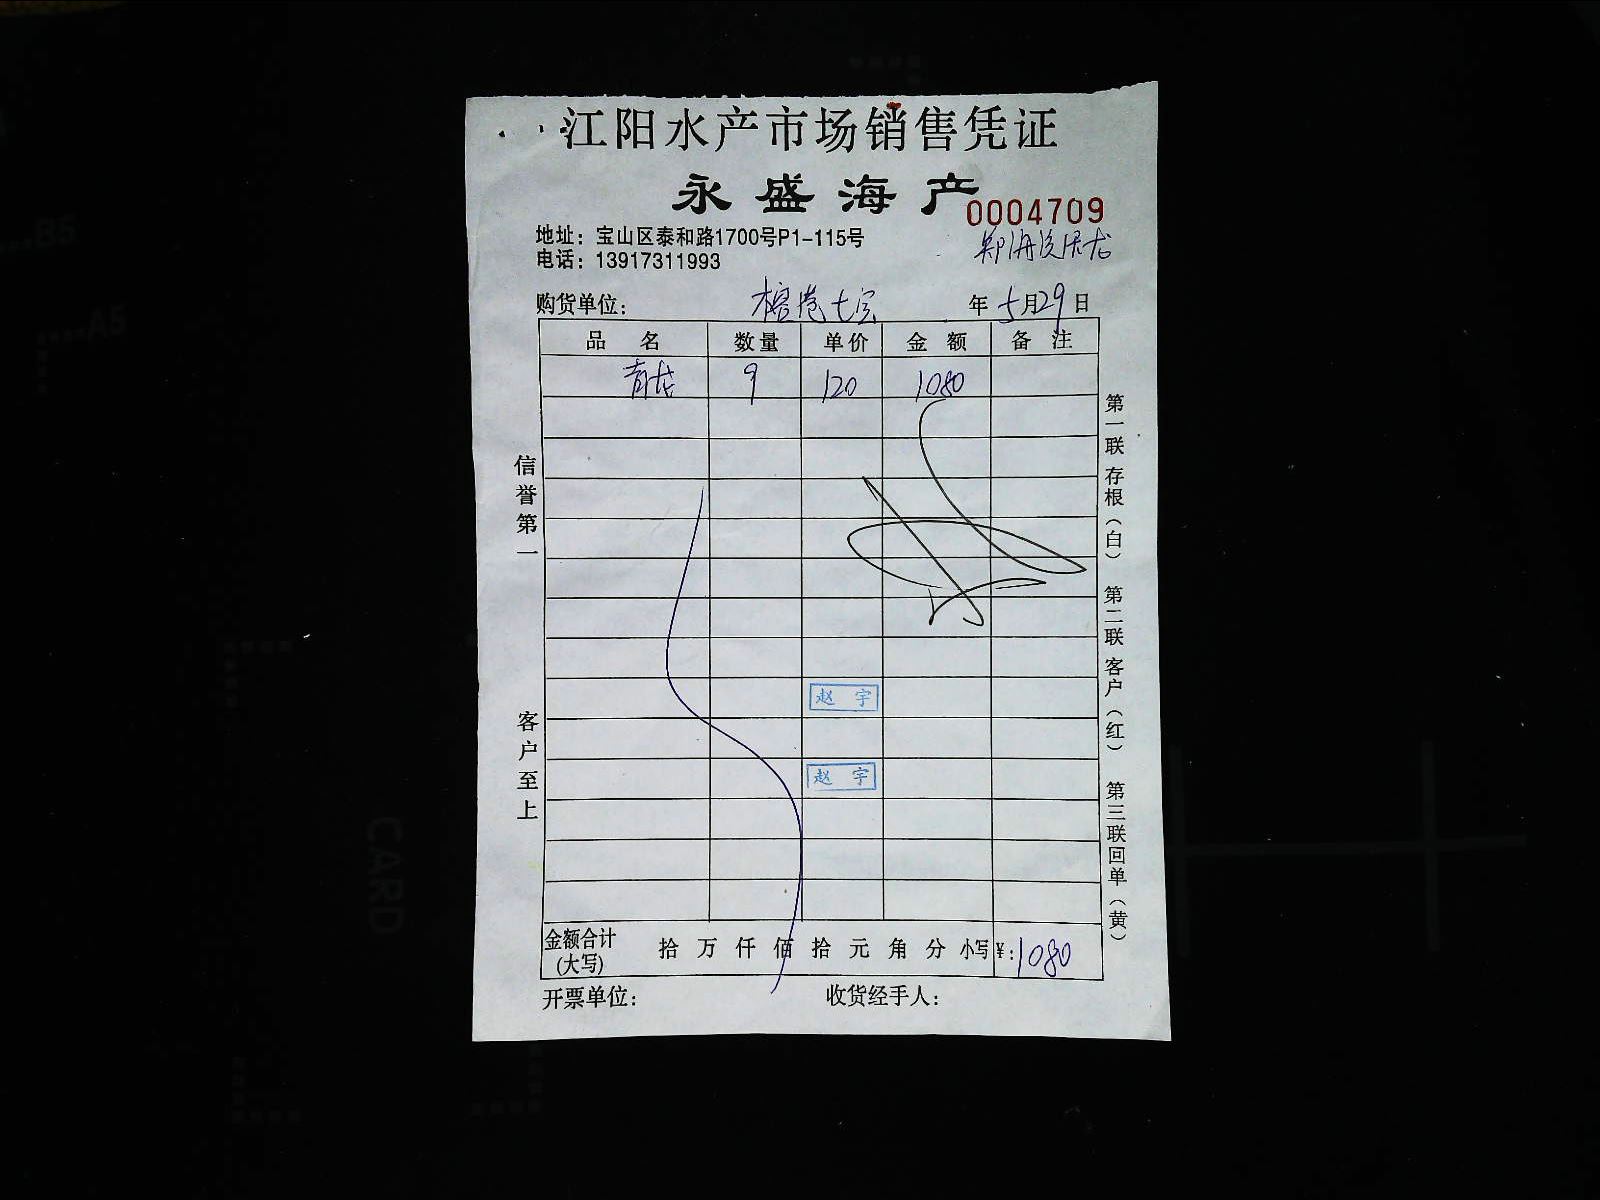 江阳水产市场销售凭证
永盛海产
0004709
地址：宝山区泰和路1700号P1-115号
电话：13917311993
购货单位： 年 5月29日
品名 数量 单价 金额 备注
青龙 9 120 1080
赵宇
赵宇
金额合计(大写) 拾 万 仟 佰 拾 元 角 分 小写¥：1080
开票单位： 收货经手人：
信誉第一
客户至上
第一联存根（白） 第二联客户（红） 第三联回单（黄）
B5
A5
CARD